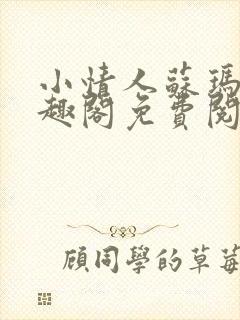 小情人蘇瑪
趣閣免費閱
顧同學的草莓